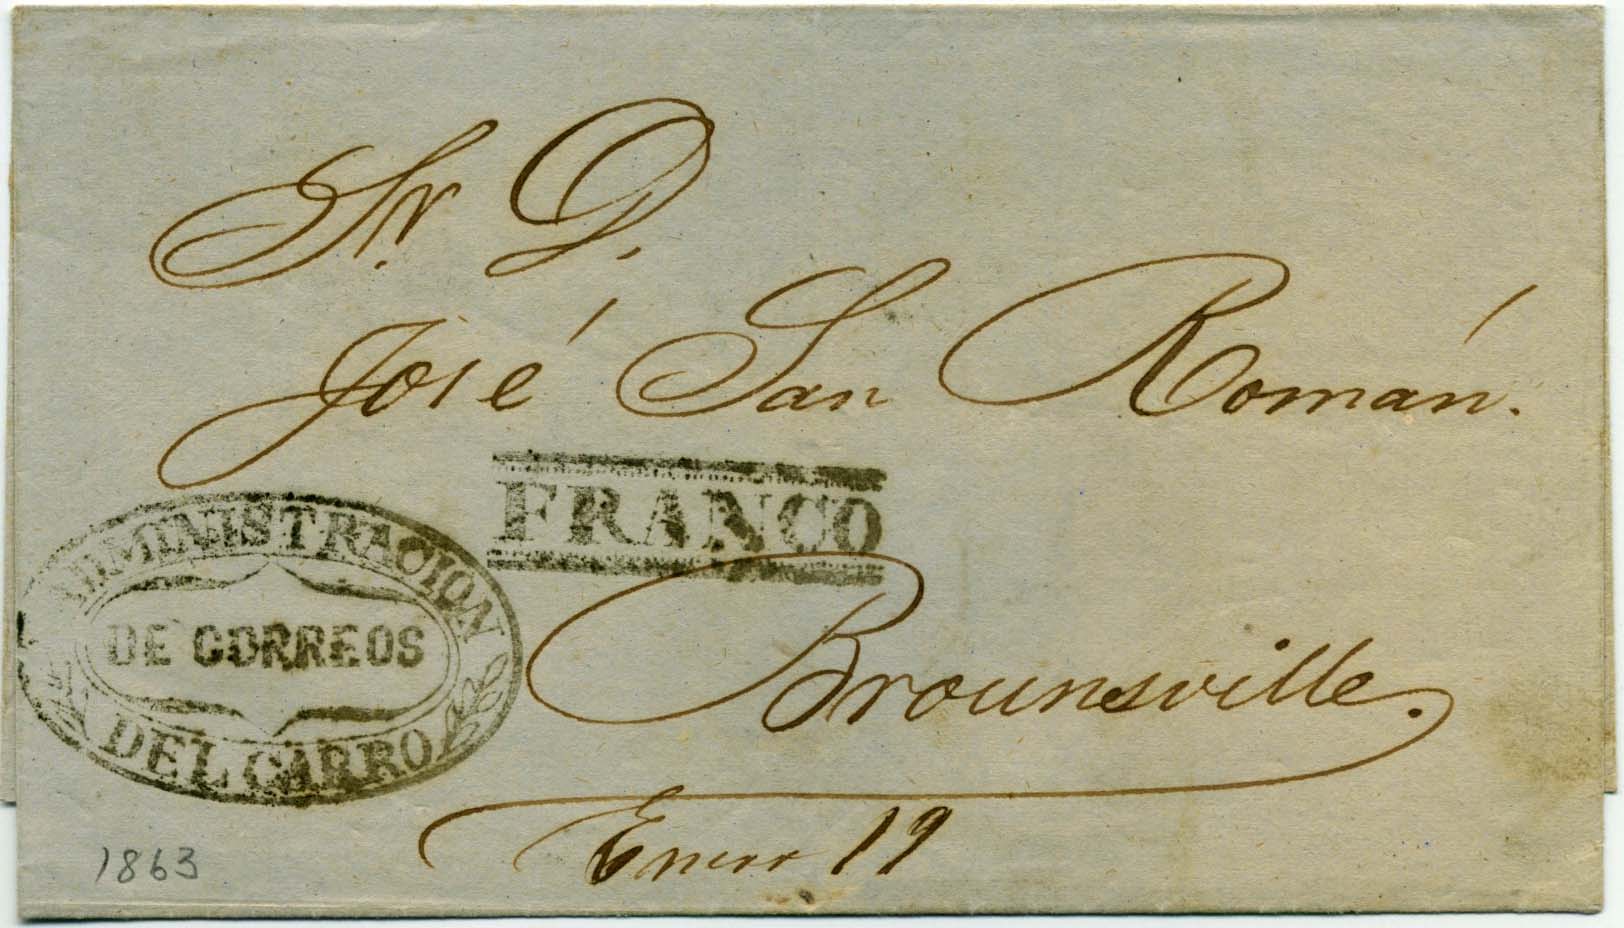 Sr. D.
José San Román.
FRANCO
ADMINISTRACION
DE CORREOS
DEL CARRO
Brounsville.
Enero 19
1863